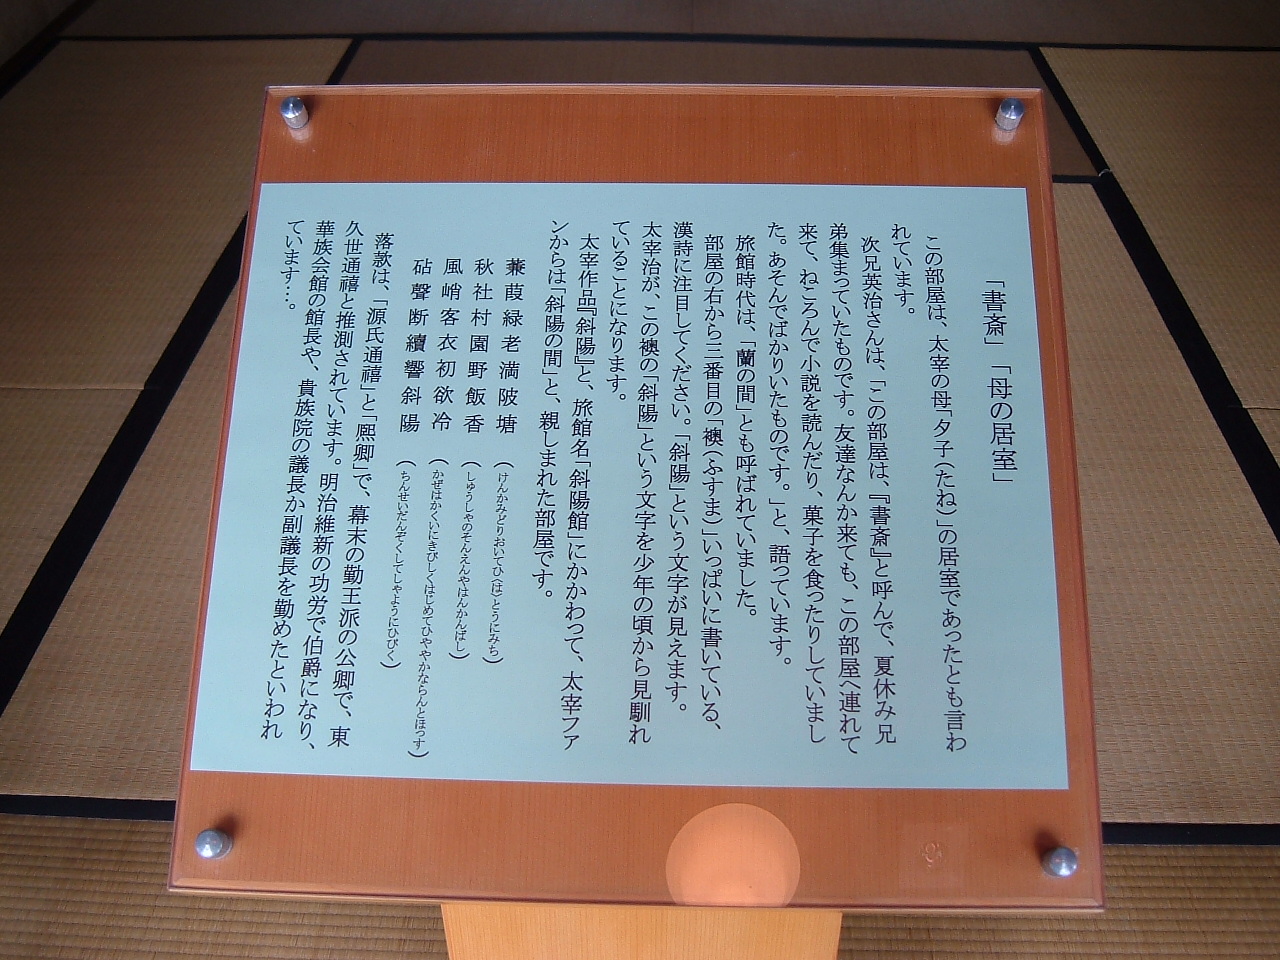 「書斎」「母の居室」
この部屋は、太宰の母「夕子（たね）」の居室であったとも言わ
れています。
次兄英治さんは、「この部屋は、『書斎』と呼んで、夏休み兄
弟集まっていたものです。友達なんか来ても、この部屋へ連れて
来て、ねころんで小説を読んだり、菓子を食ったりしていまし
た。あそんでばかりいたものです。」と、語っています。
旅館時代は、「蘭の間」とも呼ばれていました。
部屋の右から三番目の「襖（ふすま）」いっぱいに書いている、
漢詩に注目してください。「斜陽」という文字が見えます。
太宰治が、この襖の「斜陽」という文字を少年の頃から見馴れ
ていることになります。
太宰作品『斜陽』と、旅館名「斜陽館」にかかわって、太宰ファ
ンからは「斜陽の間」と、親しまれた部屋です。
蒹葭緑老満陂塘（けんかみどりおいてひ（は）とうにみち）
秋社村園野飯香（しゅうしゃのそんえんやはんかんばし）
風峭客衣初欲冷（かぜはかくいにきびしくはじめてひややかならんとほっす）
砧聲断續響斜陽（ちんせいだんぞくしてしゃようにひびく）
落款は、「源氏通禧」と「熈卿」で、幕末の勤王派の公卿で、東
久世通禧と推測されています。明治維新の功労で伯爵になり、
華族会館の館長や、貴族院の議長か副議長を勤めたといわれ
ています…。